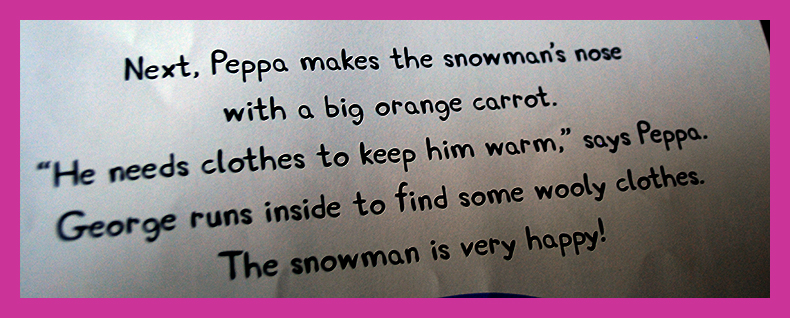 Next, Peppa makes the snowman's nose
with a big orange carrot.
“He needs clothes to keep him warm,” says Peppa.
George runs inside to find some wooly clothes.
The snowman is very happy!